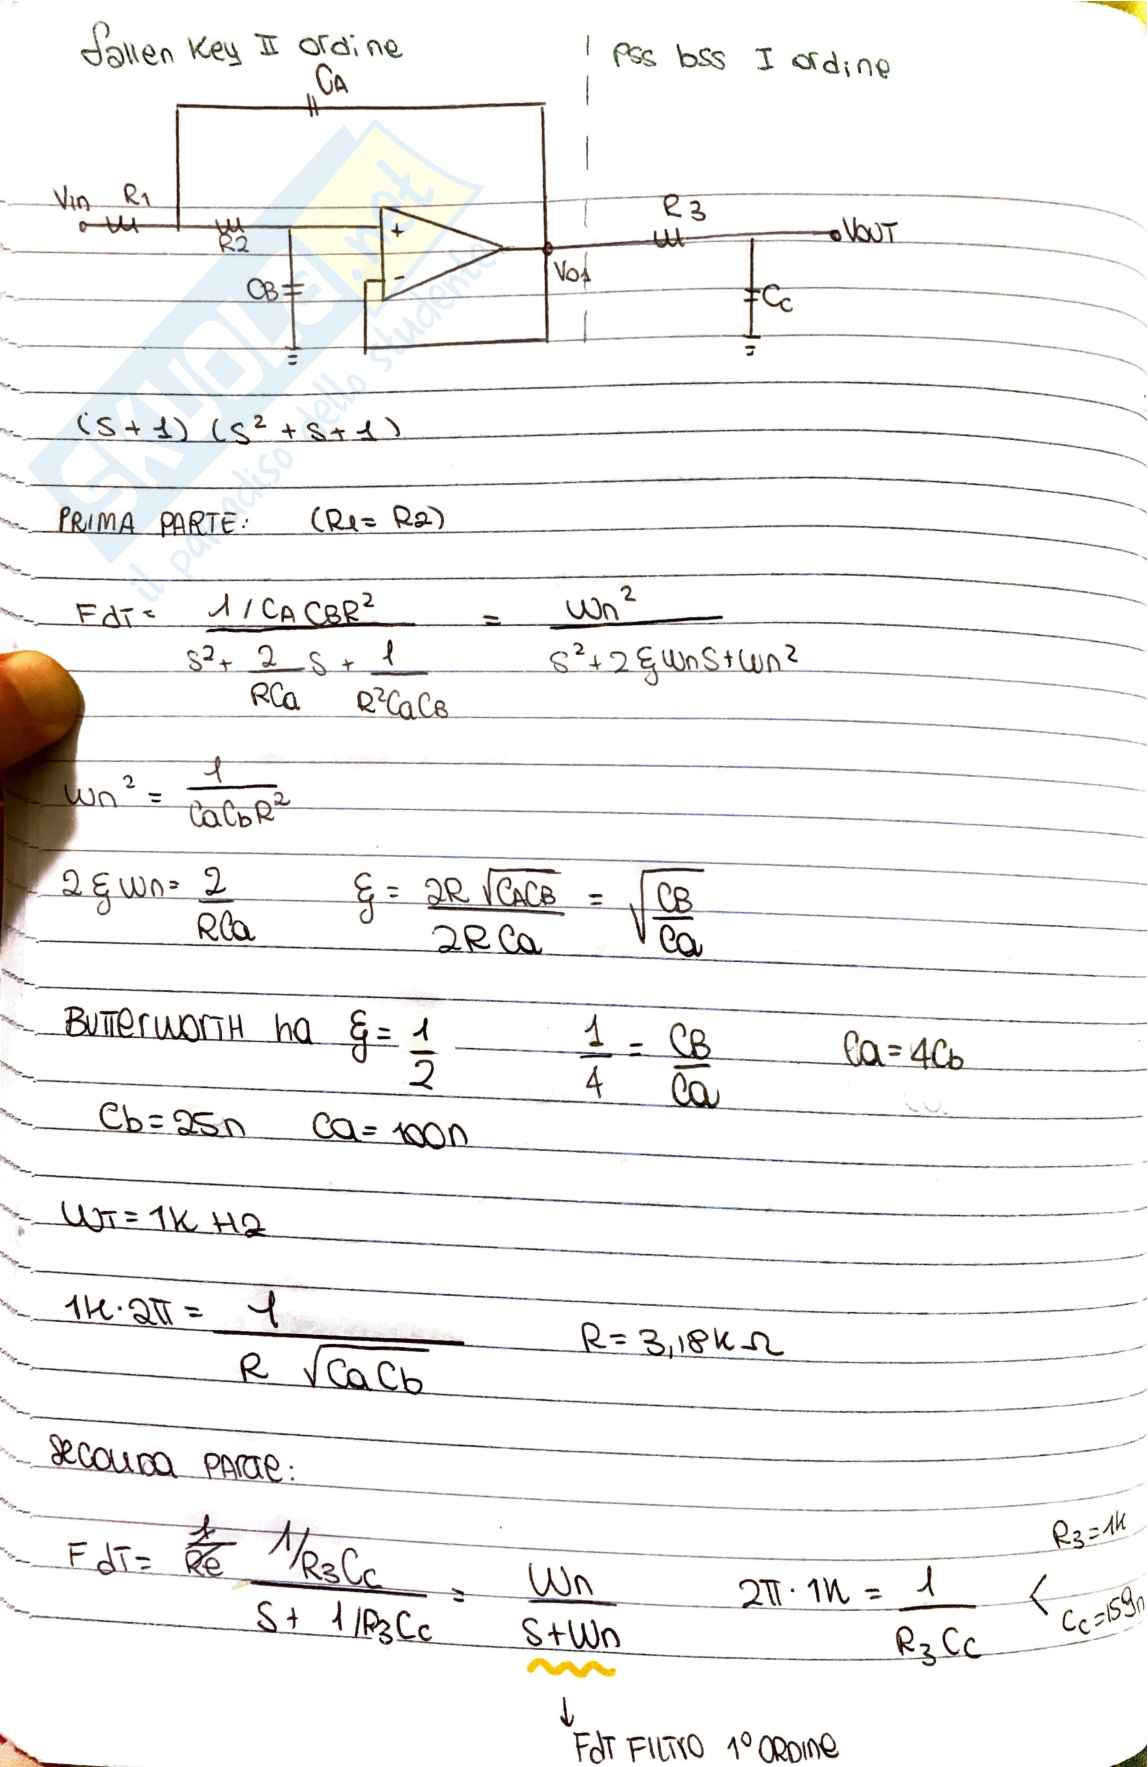 Sallen Key II ordine
pss bss I ordine
CA
Vin R1
R2
CB
+
-
Vo1
R3
VOUT
Cc
SKUOLA.net
il paradiso dello studente
(S+1) (S² + S + 1)
PRIMA PARTE: (R1 = R2)
FdT = (1/CACBR²) / (S² + (2/RCa) S + 1/(R²CaCB)) = Wn² / (S² + 2ξWnS + Wn²)
Wn² = 1 / (CaCbR²)
2ξWn = 2/(RCa) ξ = 2R√(CACB) / (2RCa) = √(CB/Ca)
Butterworth ha ξ = 1/2 1/4 = CB/Ca Ca = 4Cb
Cb = 25n Ca = 100n
WT = 1K HZ
1K·2π = 1 / (R √(CaCb)) R = 3,18K Ω
Seconda parte:
FdT = (1/R3Cc) / (S + 1/R3Cc) = Wn / (S + Wn) 2π·1K = 1 / (R3Cc) < R3 = 1K
Cc = 159n
↓
FdT FILTRO 1° ORDINE